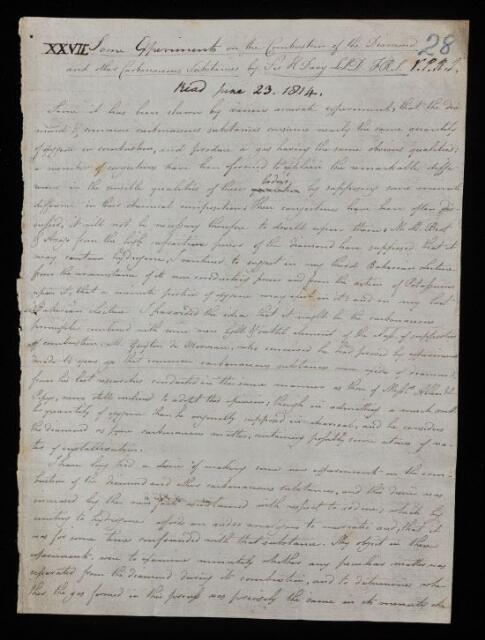 XXVII. Some Experiments on the Combustion of the Diamond 28
and other Carbonaceous Substances by Sir H Davy LLD. F.R.S. V.P.R.I.
Read June 23. 1814.
Since it has been shown by various accurate experiments, that the dia
mond & common carbonaceous substances consume nearly the same quantity
of oxygen in combustion, and produce a gas having the same obvious qualities;
a number of conjectures have been formed to explain the remarkable differ
ences in the sensible qualities of these bodies by supposing some minute
difference in their chemical composition; these conjectures have been often dis
cussed, it will not be necessary therefore to dwell upon them. M. M. Biot
& Arago from the high refractive power of the diamond have supposed that it
may contain hydrogene, I ventured to suggest in my third Bakerian Lecture
from the circumstance of its non conducting power and from the action of Potassium
upon it, that a minute portion of oxygene may exist in it; and in my last
Bakerian lecture I hazarded the idea that it might be the carbonaceous
principle combined with some new light & subtile element of the class of supporters
of combustion. M. Guyton de Morveau, who conceived he had proved by experiments
made 14 years ago that common carbonaceous substances were oxides of diamond,
from his last researches conducted in the same manner as those of Messrs Allen &
Pepys, seems still inclined to adopt this opinion; though in admitting a much smaller
quantity of oxygene than he originally supposed in charcoal, and he considers
the diamond as pure carbonaceous matter, containing possibly some atoms of wa
ter of crystallization.
I have long had a desire of making some new experiments on the com
bustion of the diamond and other carbonaceous substances, and this desire was
increased by the new facts ascertained with respect to iodine, which by
uniting to hydrogene affords an acid analogous to muriatic acid, that it
was for some time confounded with that substance. My object in these
experiments, were to examine minutely whether any peculiar matter was
separated from the diamond during its combustion, and to determine whe
ther the gas formed in this process was precisely the same in its minute che